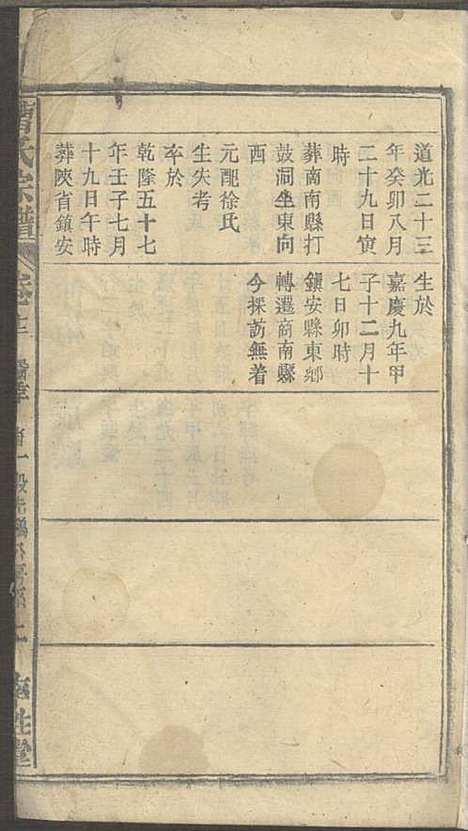 道光二十三
年癸卯八月
二十九日寅
時
葬南南縣打
鼓洞坐東向
西
元配徐氏
生失考
卒於
乾隆五十七
年壬子七月
十九日午時
葬陝省鎮安
生於
嘉慶九年甲
子十二月十
七日卯時
鎮安縣東鄉
轉遷商南縣
今探訪無着
氏宗譜
卷十三